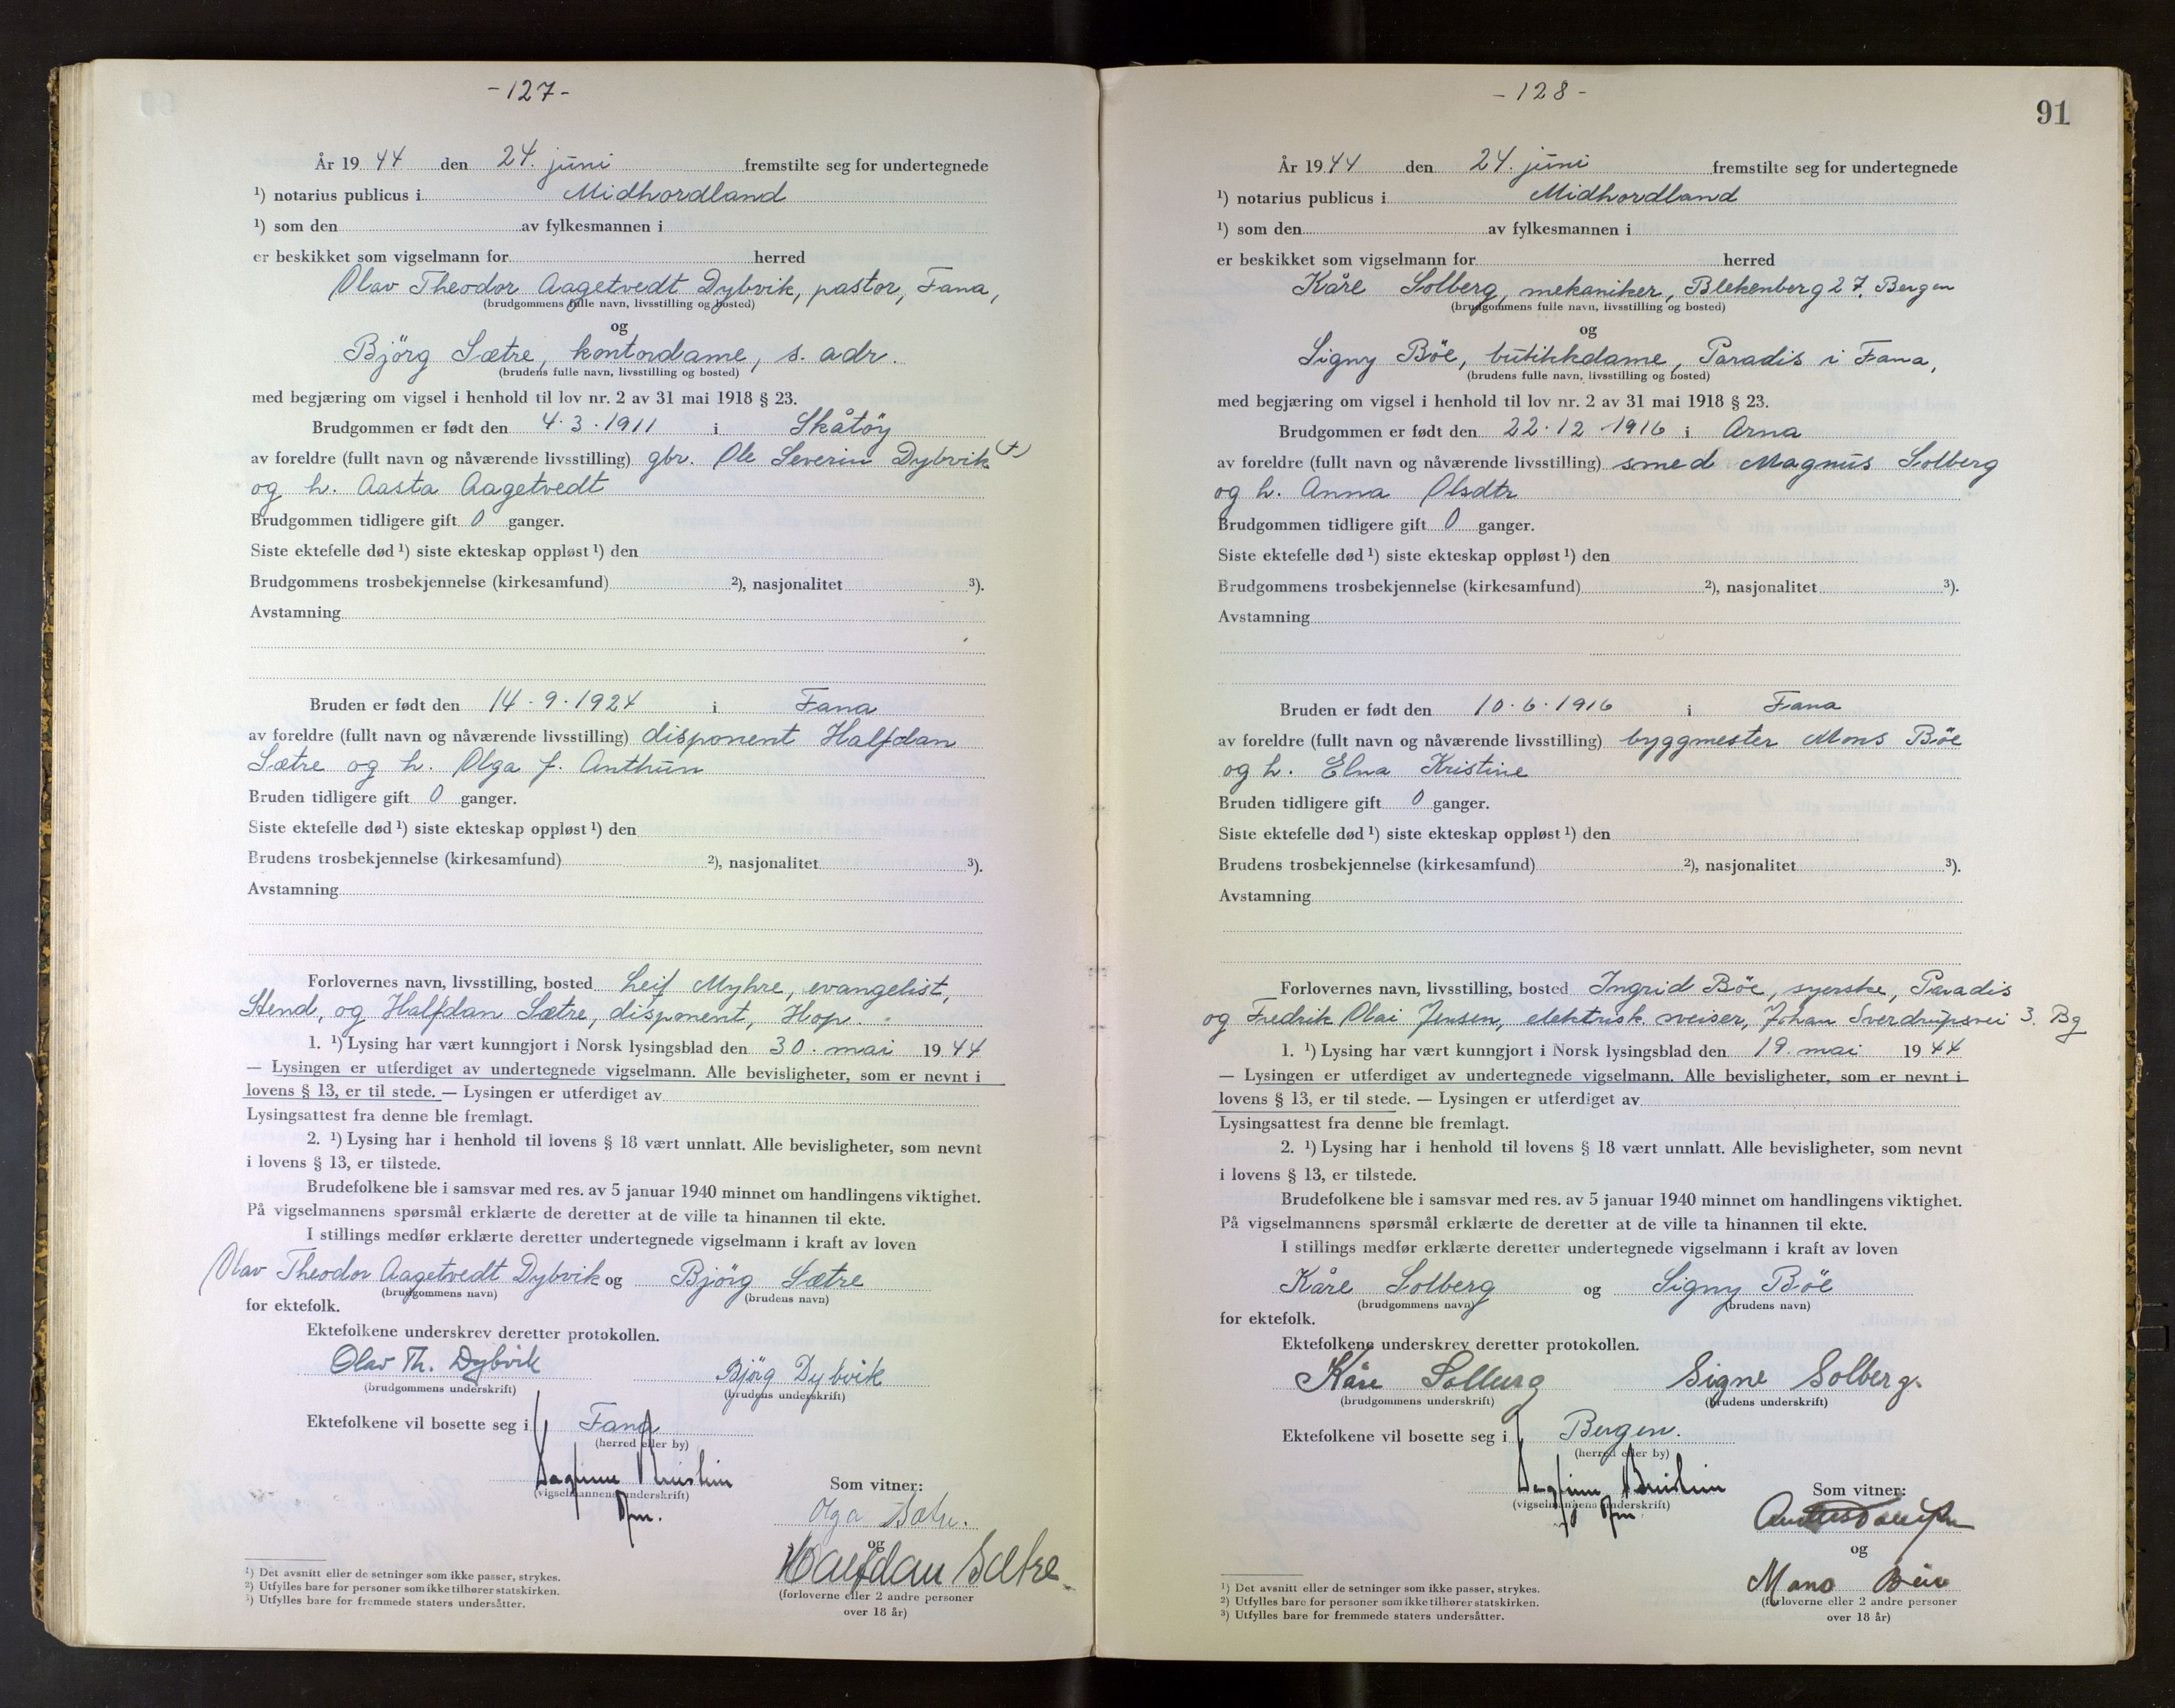 -127-
År 1944 den 24. juni fremstilte seg for undertegnede
¹) notarius publicus i Midhordland
¹) som den av fylkesmannen i
er beskikket som vigselmann for herred
Olav Theodor Aagetvedt Dybvik, pastor, Fana,
(brudgommens fulle navn, livsstilling og bosted)
og
Björg Sætre, kontordame, s. adr.
(brudens fulle navn, livsstilling og bosted)
med begjæring om vigsel i henhold til lov nr. 2 av 31 mai 1918 § 23.
Brudgommen er født den 4.3.1911 i Skåtöy
av foreldre (fullt navn og nåværende livsstilling) gbr. Ole Severin Dybvik (+)
og h. Aasta Aagetvedt
Brudgommen tidligere gift 0 ganger.
Siste ektefelle død ¹) siste ekteskap oppløst ¹) den
Brudgommens trosbekjennelse (kirkesamfund) ²), nasjonalitet ³).
Avstamning
Bruden er født den 14.9.1924 i Fana
av foreldre (fullt navn og nåværende livsstilling) disponent Halfdan
Sætre og h. Olga f. Anthun
Bruden tidligere gift 0 ganger.
Siste ektefelle død ¹) siste ekteskap oppløst ¹) den
Brudens trosbekjennelse (kirkesamfund) ²), nasjonalitet ³).
Avstamning
Forlovernes navn, livsstilling, bosted Leif Myhre, evangelist,
Stend, og Halfdan Sætre, disponent, Hop.
1. ¹) Lysing har vært kunngjort i Norsk lysingsblad den 30. mai 1944
— Lysingen er utferdiget av undertegnede vigselmann. Alle bevisligheter, som er nevnt i
lovens § 13, er til stede. — Lysingen er utferdiget av
Lysingsattest fra denne ble fremlagt.
2. ¹) Lysing har i henhold til lovens § 18 vært unnlatt. Alle bevisligheter, som nevnt
i lovens § 13, er tilstede.
Brudefolkene ble i samsvar med res. av 5 januar 1940 minnet om handlingens viktighet.
På vigselmannens spørsmål erklærte de deretter at de ville ta hinannen til ekte.
I stillings medfør erklærte deretter undertegnede vigselmann i kraft av loven
Olav Theodor Aagetvedt Dybvik og Björg Sætre
(brudgommens navn) (brudens navn)
for ektefolk.
Ektefolkene underskrev deretter protokollen.
Olav Th. Dybvik Björg Dybvik
(brudgommens underskrift) (brudens underskrift)
Ektefolkene vil bosette seg i Fana
(herred eller by)
(vigselmannens underskrift)
Som vitner:
Olga Sætre.
og
Halfdan Sætre
(forloverne eller 2 andre personer
over 18 år)
¹) Det avsnitt eller de setninger som ikke passer, strykes.
²) Utfylles bare for personer som ikke tilhører statskirken.
³) Utfylles bare for fremmede staters undersåtter.
-128-
91
År 1944 den 24. juni fremstilte seg for undertegnede
¹) notarius publicus i Midhordland
¹) som den av fylkesmannen i
er beskikket som vigselmann for herred
Kåre Solberg, mekaniker, Blekenberg 27, Bergen
(brudgommens fulle navn, livsstilling og bosted)
og
Signy Böe, butikkdame, Paradis i Fana,
(brudens fulle navn, livsstilling og bosted)
med begjæring om vigsel i henhold til lov nr. 2 av 31 mai 1918 § 23.
Brudgommen er født den 22.12.1916 i Arna
av foreldre (fullt navn og nåværende livsstilling) smed Magnus Solberg
og h. Anna Olsdtr
Brudgommen tidligere gift 0 ganger.
Siste ektefelle død ¹) siste ekteskap oppløst ¹) den
Brudgommens trosbekjennelse (kirkesamfund) ²), nasjonalitet ³).
Avstamning
Bruden er født den 10.6.1916 i Fana
av foreldre (fullt navn og nåværende livsstilling) byggmester Mons Böe
og h. Elna Kristine
Bruden tidligere gift 0 ganger.
Siste ektefelle død ¹) siste ekteskap oppløst ¹) den
Brudens trosbekjennelse (kirkesamfund) ²), nasjonalitet ³).
Avstamning
Forlovernes navn, livsstilling, bosted Ingrid Böe, syerske, Paradis
og Fredrik Olai Jensen, elektrisk sveiser, Johan Sverdrupsvei 3. Bg
1. ¹) Lysing har vært kunngjort i Norsk lysingsblad den 19. mai 1944
— Lysingen er utferdiget av undertegnede vigselmann. Alle bevisligheter, som er nevnt i
lovens § 13, er til stede. — Lysingen er utferdiget av
Lysingsattest fra denne ble fremlagt.
2. ¹) Lysing har i henhold til lovens § 18 vært unnlatt. Alle bevisligheter, som nevnt
i lovens § 13, er tilstede.
Brudefolkene ble i samsvar med res. av 5 januar 1940 minnet om handlingens viktighet.
På vigselmannens spørsmål erklærte de deretter at de ville ta hinannen til ekte.
I stillings medfør erklærte deretter undertegnede vigselmann i kraft av loven
Kåre Solberg og Signy Böe
(brudgommens navn) (brudens navn)
for ektefolk.
Ektefolkene underskrev deretter protokollen.
Kåre Solberg Signe Solberg.
(brudgommens underskrift) (brudens underskrift)
Ektefolkene vil bosette seg i Bergen.
(herred eller by)
(vigselmannens underskrift)
Som vitner:
og
Mons Böe
(forloverne eller 2 andre personer
over 18 år)
¹) Det avsnitt eller de setninger som ikke passer, strykes.
²) Utfylles bare for personer som ikke tilhører statskirken.
³) Utfylles bare for fremmede staters undersåtter.